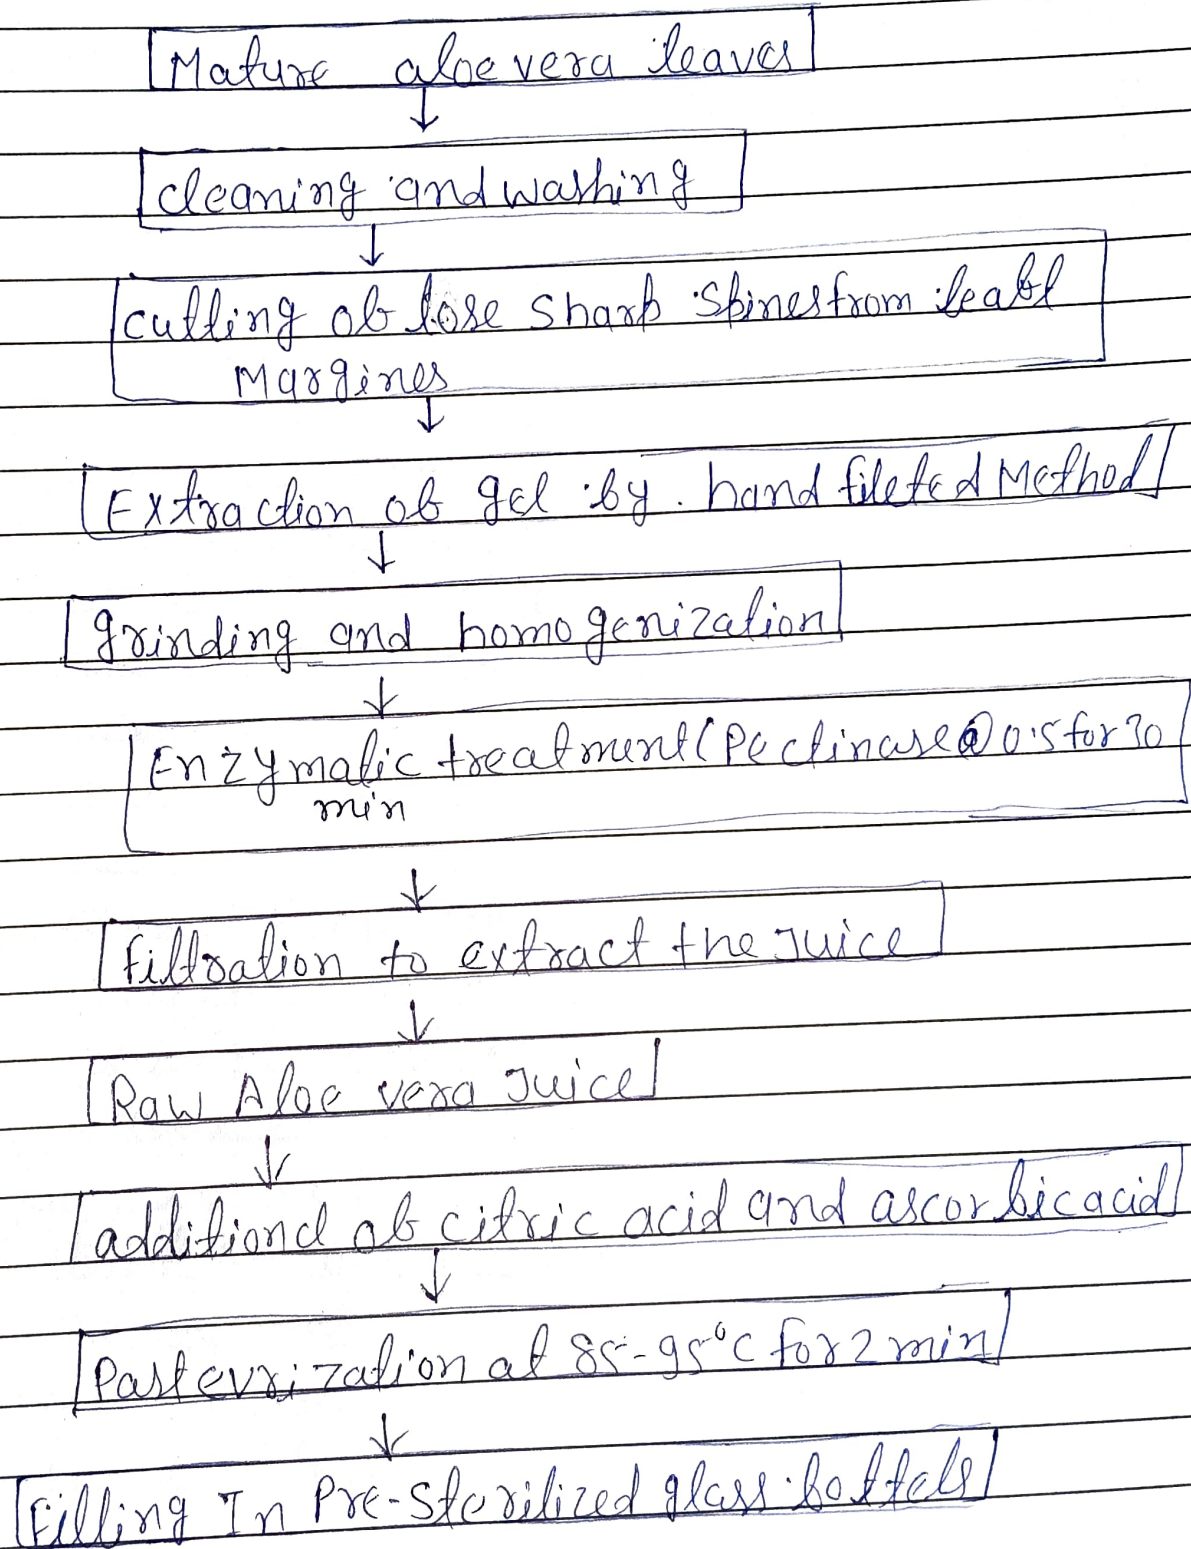 Mature aloe vera leaves
↓
cleaning and washing
↓
cutting of lose sharp spines from leafl
Margines
↓
Extraction of gel by hand fileted Method
↓
grinding and homogenization
↓
Enzymatic treatment (Pectinase @ 0.5 for 30
min
↓
filtration to extract the Juice
↓
Raw Aloe vera Juice
↓
additiond of citric acid and ascorbic acid
↓
Pasteurization at 85-95°C for 2 min
↓
Filling In Pre-Sterilized glass bottels